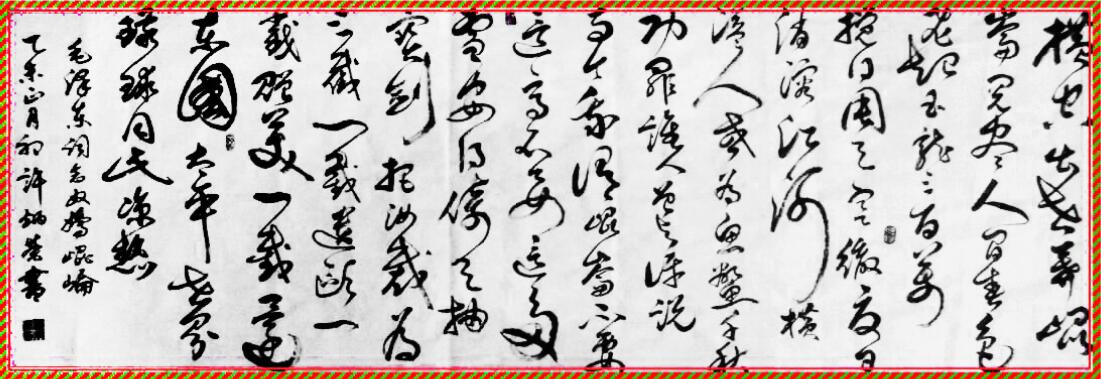 横空出世莽崐
崙阅尽人间春色
飞起玉龙三百万
搅得周天寒彻夏日
消溶江河横
溢人或为鱼鳖千秋
功罪谁人曾与评说
而今我谓崐崙不要
这高不要这多
雪安得倚天抽
宝剑把汝裁为
三截一截遗欧一
截赠美一截还
东國太平世界
环球同此凉热
毛泽东词念奴娇崐崙
乙未正月初許炳書